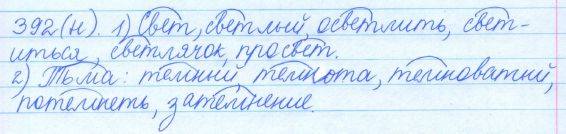 392(н). 1) Свет, светлый, осветлить, свет-
иться, светлячок, просвет.
2) Тьма: темний темнота, темноватий,
потемнеть, затемнение.